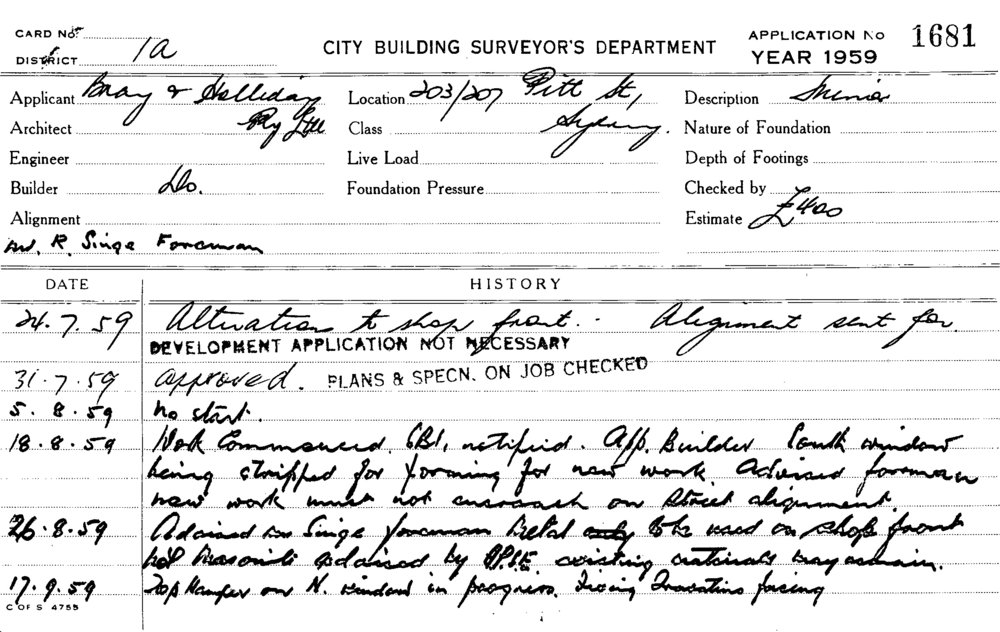 CARD No.
DISTRICT 1a
CITY BUILDING SURVEYOR'S DEPARTMENT
APPLICATION No 1681
YEAR 1959
Applicant Bray & Holliday
Pty Ltd
Location 203/207 Pitt St,
Sydney.
Description
Architect
Class
Nature of Foundation
Engineer
Live Load
Depth of Footings
Builder Do.
Foundation Pressure
Checked by
Alignment
Estimate £400
R. Singe Foreman
DATE HISTORY
24.7.59 Alterations to shop front. - Alignment sent for.
DEVELOPMENT APPLICATION NOT NECESSARY
31.7.59 approved. PLANS & SPECN. ON JOB CHECKED
5.8.59 no start.
18.8.59 Work Commenced. CBI, notified. App. Builder South window
being stripped for forming for new work. Advised foreman
new work must not encroach on Street alignment.
26.8.59 Advised Singe foreman Metal only to be used on shop front
not masonite advised by existing materials may remain.
17.9.59 Top Hamper on N. window in progress. Fixing Travatino facing
C OF S 4755